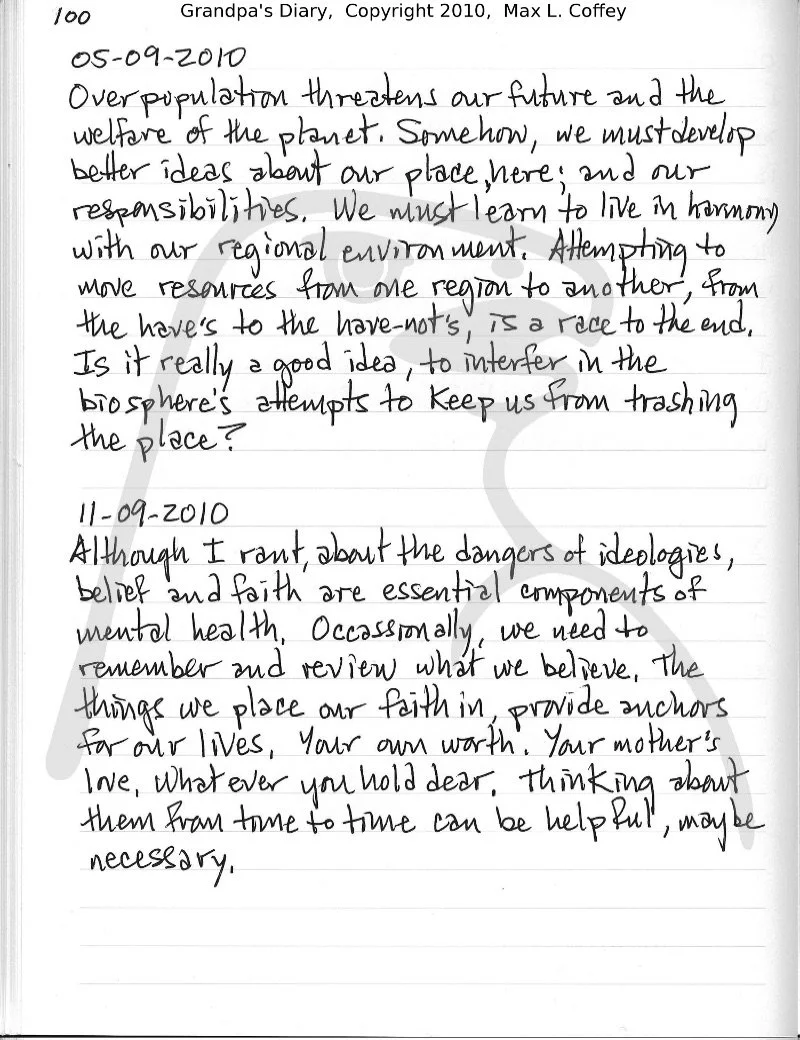 100
Grandpa's Diary, Copyright 2010, Max L. Coffey
05-09-2010
Overpopulation threatens our future and the
welfare of the planet. Somehow, we must develop
better ideas about our place, here; and our
responsibilities. We must learn to live in harmony
with our regional environment. Attempting to
move resources from one region to another, from
the have's to the have-not's, is a race to the end.
Is it really a good idea, to interfer in the
biosphere's attempts to keep us from trashing
the place?
11-09-2010
Although I rant, about the dangers of ideologies,
belief and faith are essential components of
mental health. Occassionally, we need to
remember and review what we believe. The
things we place our faith in, provide anchors
for our lives. Your own worth. Your mother's
love. What ever you hold dear. Thinking about
them from time to time can be helpful, maybe
necessary.